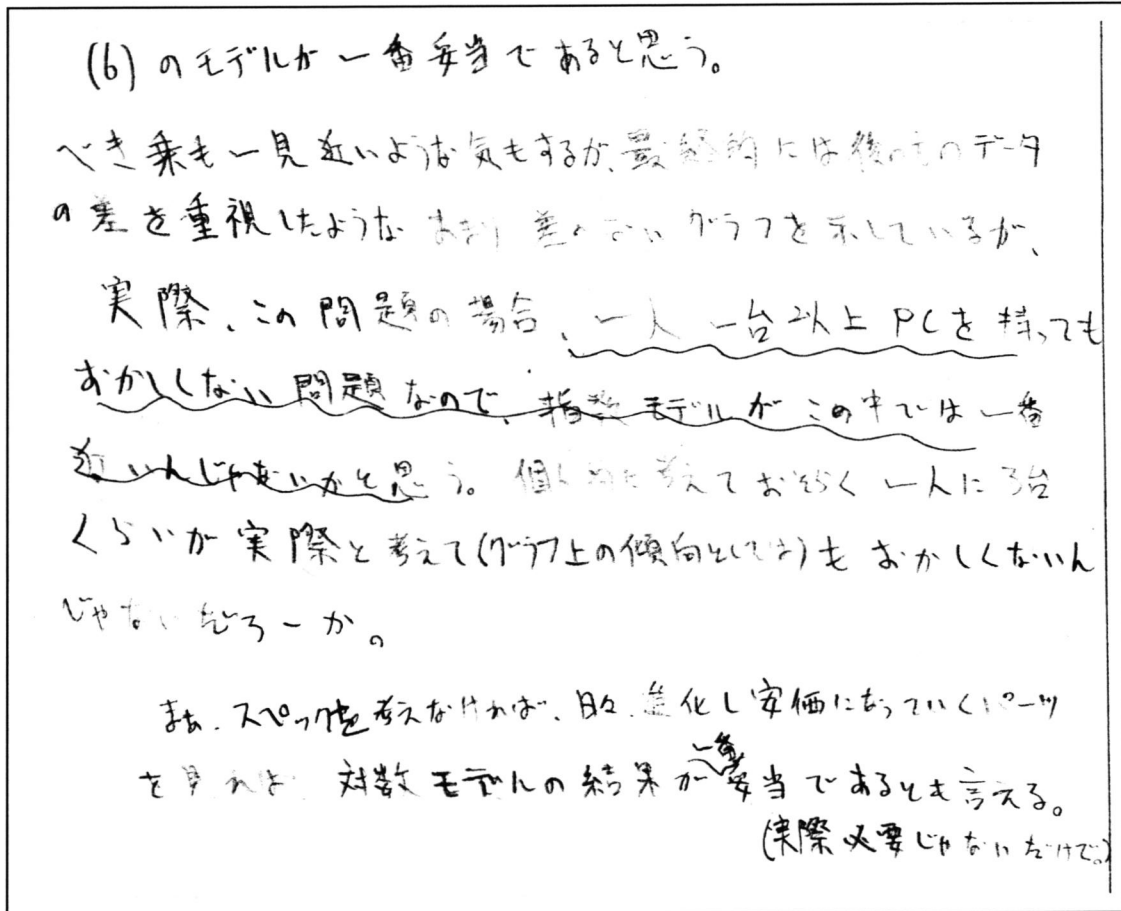 (6)のモデルが一番妥当であると思う。
べき乗も一見近いような気もするが、最終的には後のデータ
の差を重視したような あまり差のないグラフを示しているが、
実際、この問題の場合、一人一台以上PCを持っても
おかしくない問題なので、指数モデルがこの中では一番
近いんじゃないかと思う。個人的に考えておそらく一人に3台
くらいが実際と考えて(グラフ上の傾向としては)もおかしくないん
じゃないだろーか。
まぁ、スペックを考えなければ、日々進化し安価になっていくパーツ
を見れば 対数モデルの結果が一番妥当であるとも言える。
(実際必要じゃないだけで。)